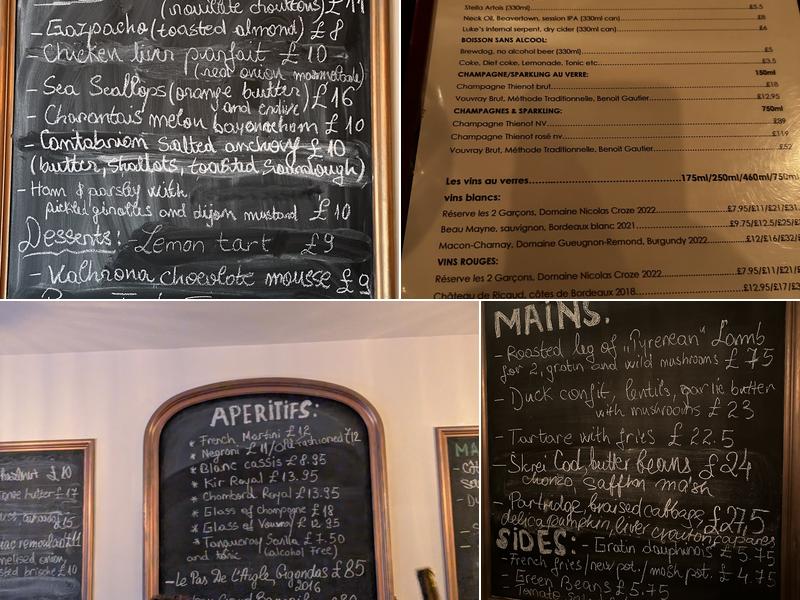 £11
- Gazpacho (toasted almond) £8
- Chicken liver parfait £10
(red onion marmelade)
- Sea Scallops (orange butter) £16
and endive
- Charantais melon bayonne ham £10
- Cantabrian salted anchovy £10
(butter, shallots, toasted sourdough)
- Ham & parsley with
pickle girolles and dijon mustard £10
Desserts: - Lemon tart £9
- Valhrona chocolate mousse £9
Stella Artois (330ml) £5.5
Neck Oil, Beavertown, session IPA (330ml can) £6
Luke's infernal serpent, dry cider (330ml can) £6
BOISSON SANS ALCOOL:
Brewdog, no alcohol beer (330ml) £5
Coke, Diet coke, Lemonade, Tonic etc. £3.5
CHAMPAGNE/SPARKLING AU VERRE: 150ml
Champagne Thienot brut £18
Vouvray Brut, Méthode Traditionnelle, Benoit Gautier £12.95
CHAMPAGNES & SPARKLING: 750ml
Champagne Thienot NV £89
Champagne Thienot rosé nv £119
Vouvray Brut, Méthode Traditionnelle, Benoit Gautier £52
Les vins au verres 175ml/250ml/460ml/750ml
vins blancs:
Réserve les 2 Garçons, Domaine Nicolas Croze 2022 £7.95/£11/£21/£31.
Beau Mayne, sauvignon, Bordeaux blanc 2021 £9.75/£12.5/£25/£
Macon-Charnay, Domaine Gueugnon-Remond, Burgundy 2022 £12/£16/£32/£
VINS ROUGES:
Réserve les 2 Garçons, Domaine Nicolas Croze 2022 £7.95/£11/£21/£3
Château de Ricaud, côtes de Bordeaux 2018 £12.95/£17/£3
APERITIFS:
* French Martini £12
* Negroni £11/old fashioned £12
* Blanc cassis £8.95
* Kir Royal £13.95
* Chambord Royal £13.95
* Glass of Champagne £18
* Glass of Vouvray £12.95
* Tanqueray Sevilla £7.50
and tonic (alcohol free)
- Le Pas De L'Aigle Gigondas £85
2016
hazelnut £10
butter £17
£15
remoulade £11
onion,
brioche £10
MAINS:
- Roasted leg of "Pyrenean" Lamb
for 2, gratin and wild mushrooms £75
- Duck confit, lentils, garlic butter
with mushrooms £23
- Tartare with fries £22.5
- Skrei Cod, butter beans £24
chorizo, saffron mash
- Partridge, braised cabbage, £27,5
delica pumpkin, liver crouton, capers
SIDES: - Gratin dauphinois £5.75
- French fries/new pot./mash pot. £4.75
- Green Beans £5.75
- Tomato